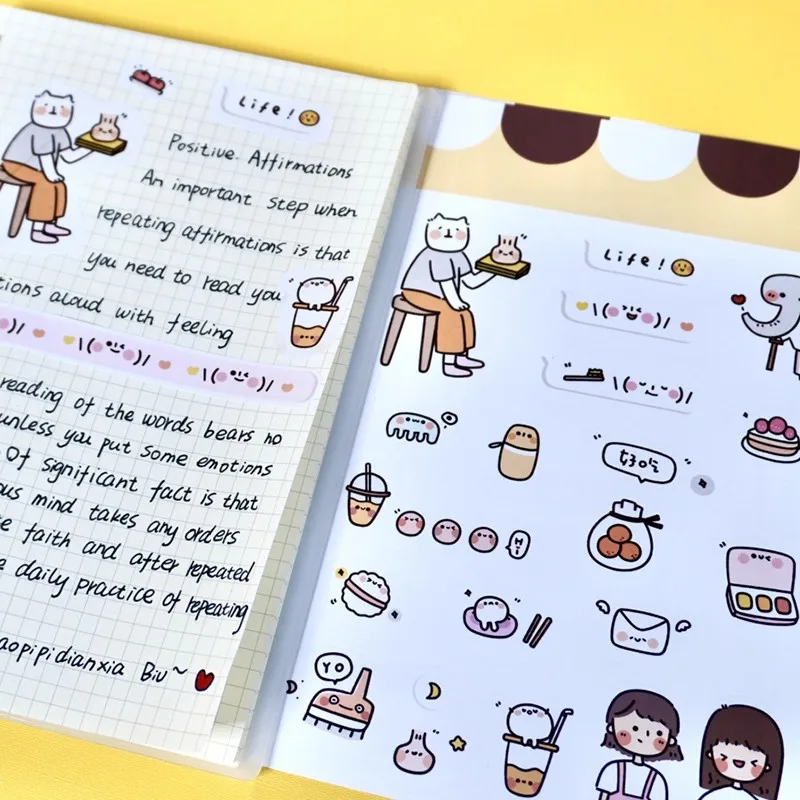 Life!
Positive Affirmations
An important step when
repeating affirmations is that
you need to read you
tions aloud with feeling
\( )/ \( )/
reading of the words bears no
unless you put some emotions
Of significant fact is that
ous mind takes any orders
faith and after repeated
daily practice of repeating
aopipidianxia Biu~
Life!
\( )/
\( )/
好吃
Hi
YO